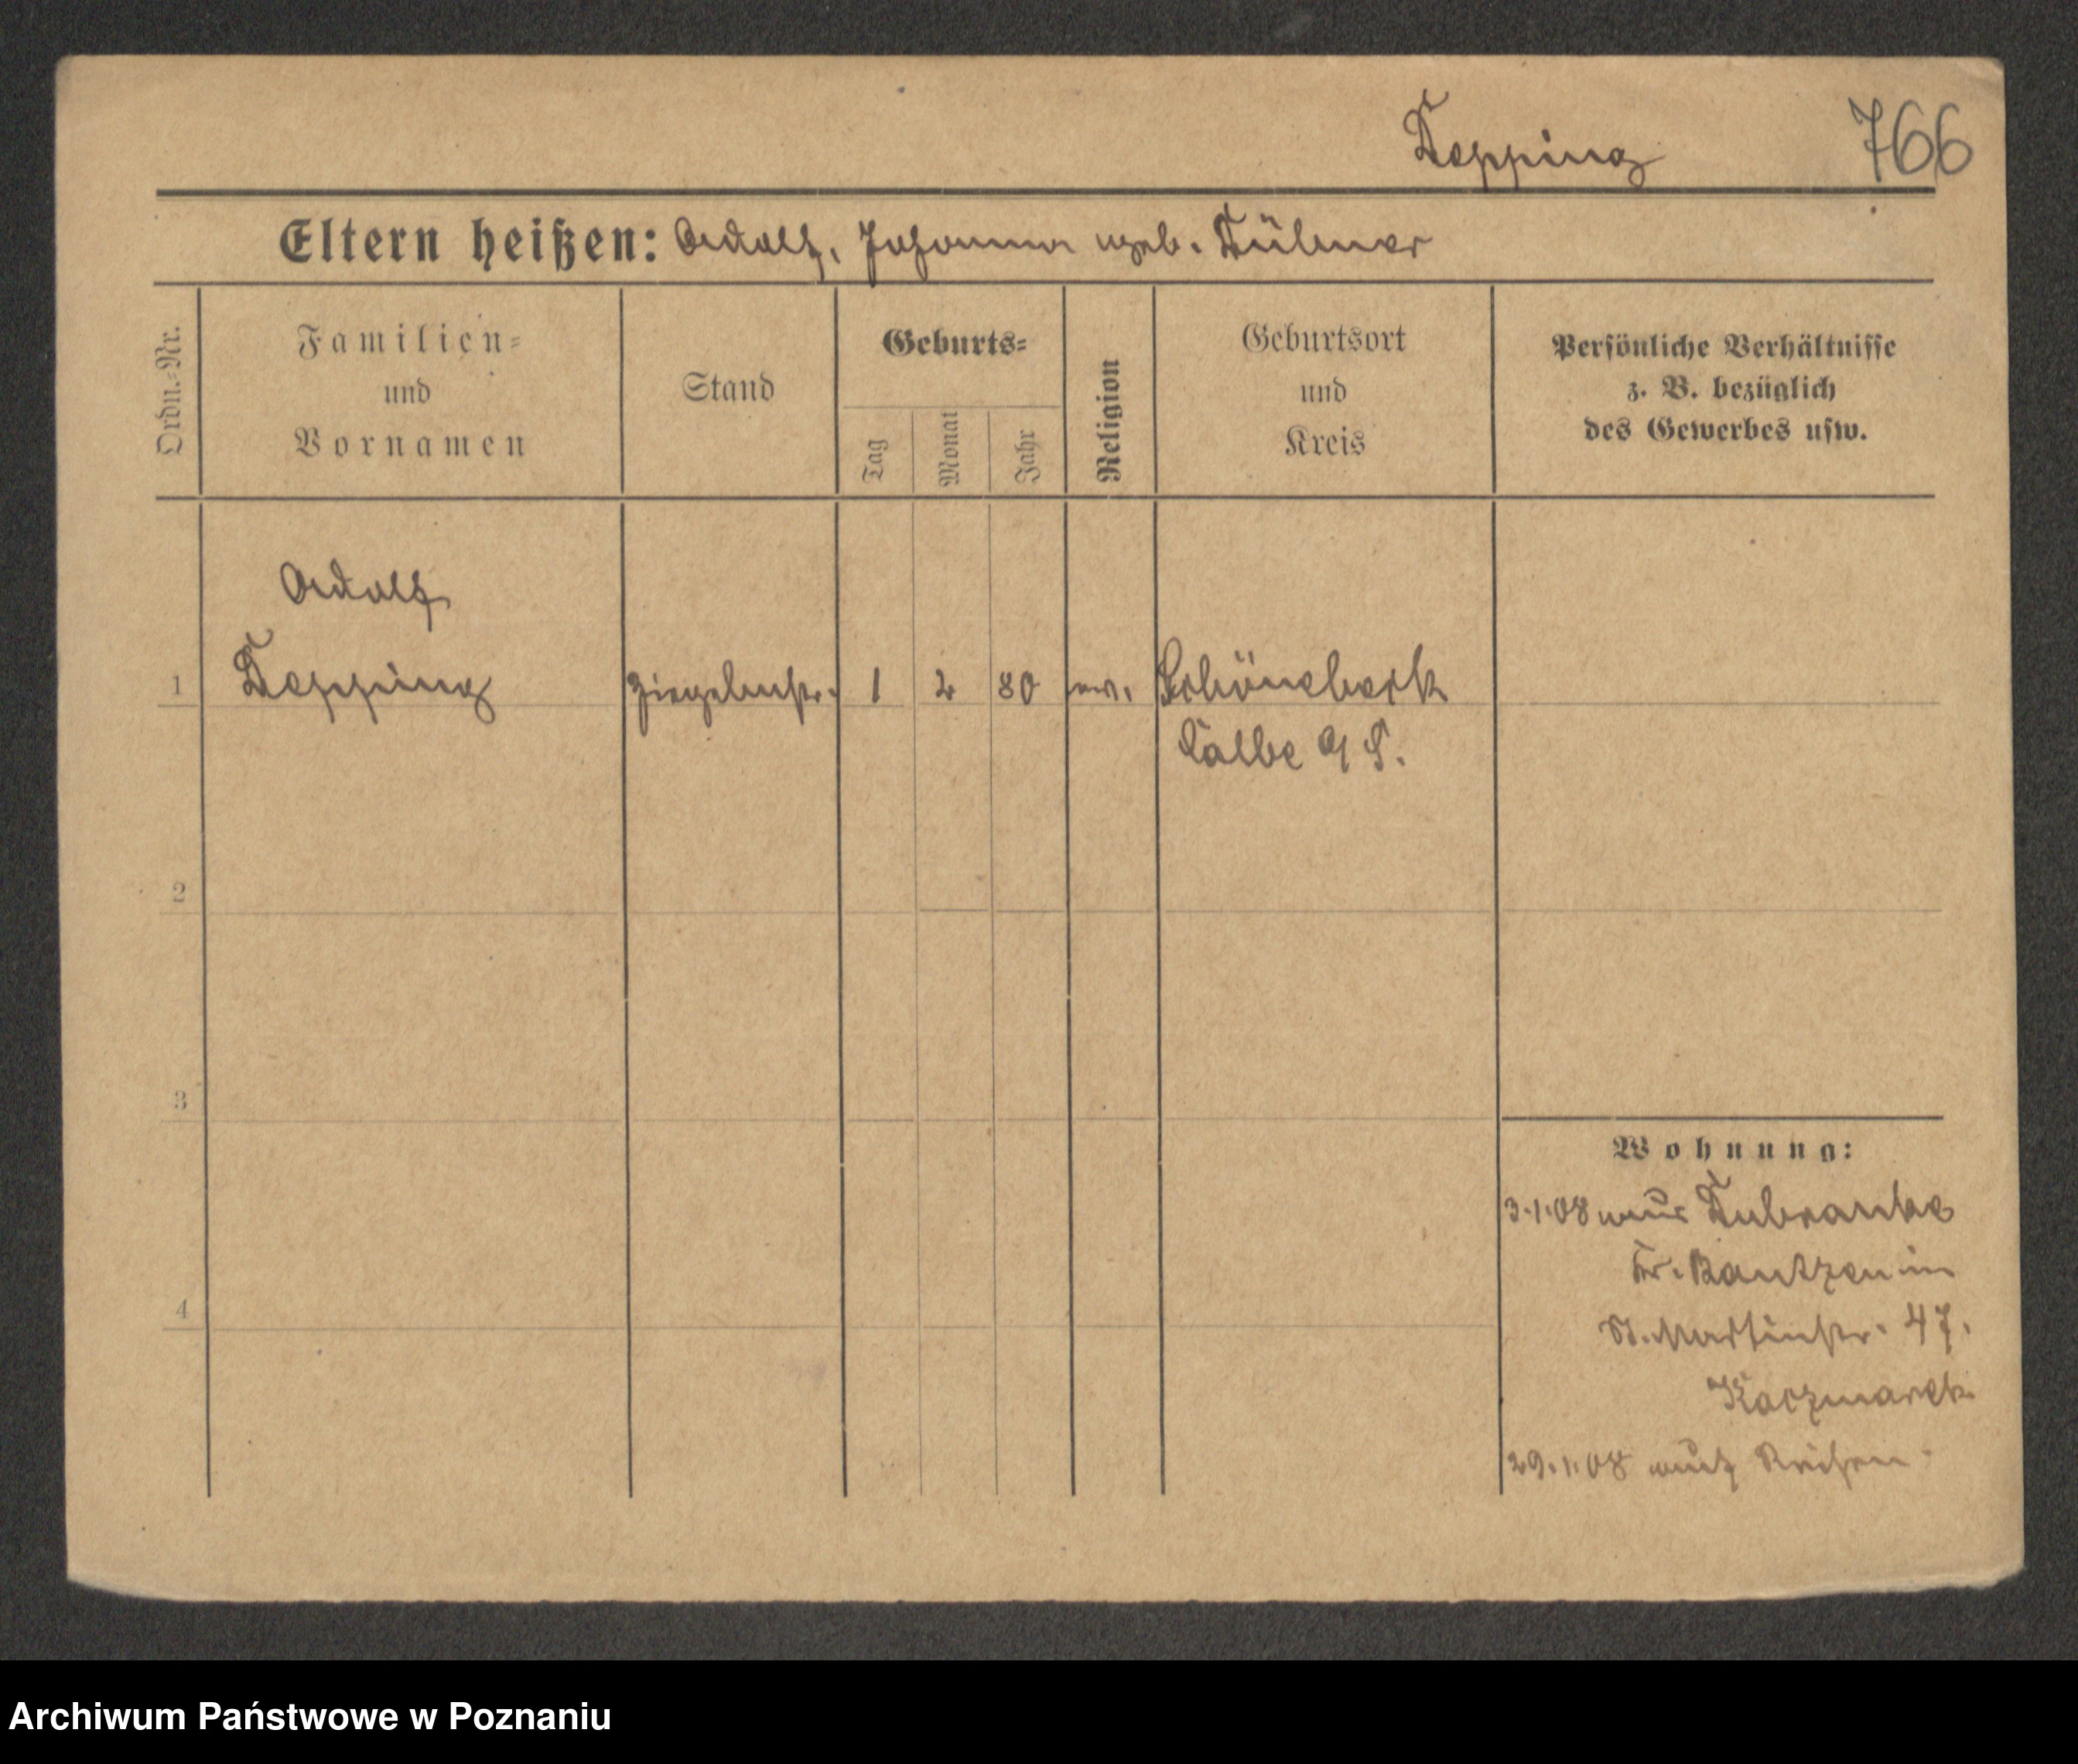 Topping 766
Eltern heißen: Adolf, Johanna geb. Dübner
Ordn.-Nr.
Familien-
und
Vornamen
Stand
Geburts-
Tag
Monat
Jahr
Religion
Geburtsort
und
Kreis
Persönliche Verhältnisse
z. B. bezüglich
des Gewerbes usw.
Adolf
1 Topping Ziegelmstr. 1 2 80 ev. Schönebeck
Calbe a/S.
2
3
4
Wohnung:
3.1.08 aus
Kr. Bautzen in
St. Martinstr. 47.
Kaczmarek
29.1.08 auf Reisen.
Archiwum Państwowe w Poznaniu